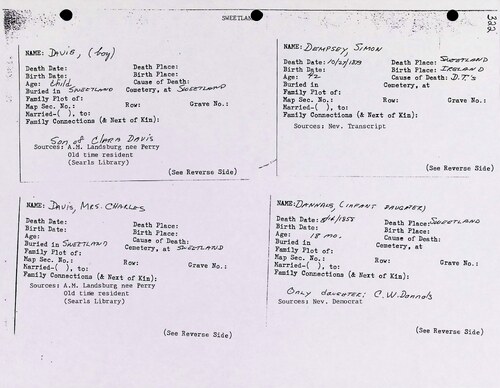 SWEETLAND
NAME: DAVIS, (boy)
Death Date: Death Place:
Birth Date: Birth Place:
Age: Child Cause of Death:
Buried in SWEETLAND Cemetery, at SWEETLAND
Family Plot of:
Map Sec. No.: Row: Grave No.:
Married-( ), to:
Family Connections (& Next of Kin):
Son of CLARA DAVIS
Sources: A.M. Landsburg nee Perry
Old time resident
(Searls Library)
(See Reverse Side)
NAME: DEMPSEY, SIMON
Death Date: Death Place: SWEETLAND
Birth Date: Birth Place: IRELAND
Age: 42 Cause of Death: D.T.'s
Buried in Cemetery, at
Family Plot of:
Map Sec. No.: Row: Grave No.:
Married-( ), to:
Family Connections (& Next of Kin):
Sources: Nev. Transcript
(See Reverse Side)
NAME: DAVIS, MRS. CHARLES
Death Date: Death Place:
Birth Date: Birth Place:
Age: Cause of Death:
Buried in SWEETLAND Cemetery, at SWEETLAND
Family Plot of:
Map Sec. No.: Row: Grave No.:
Married-( ), to:
Family Connections (& Next of Kin):
Sources: A.M. Landsburg nee Perry
Old time resident
(Searls Library)
(See Reverse Side)
NAME: DANNALS (INFANT DAUGHTER)
Death Date: Death Place: SWEETLAND
Birth Date: Birth Place:
Age: 18 mo. Cause of Death:
Buried in Cemetery, at
Family Plot of:
Map Sec. No.: Row: Grave No.:
Married-( ), to:
Family Connections (& Next of Kin):
ONLY daughter: C.W. Dannals
Sources: Nev. Democrat
(See Reverse Side)